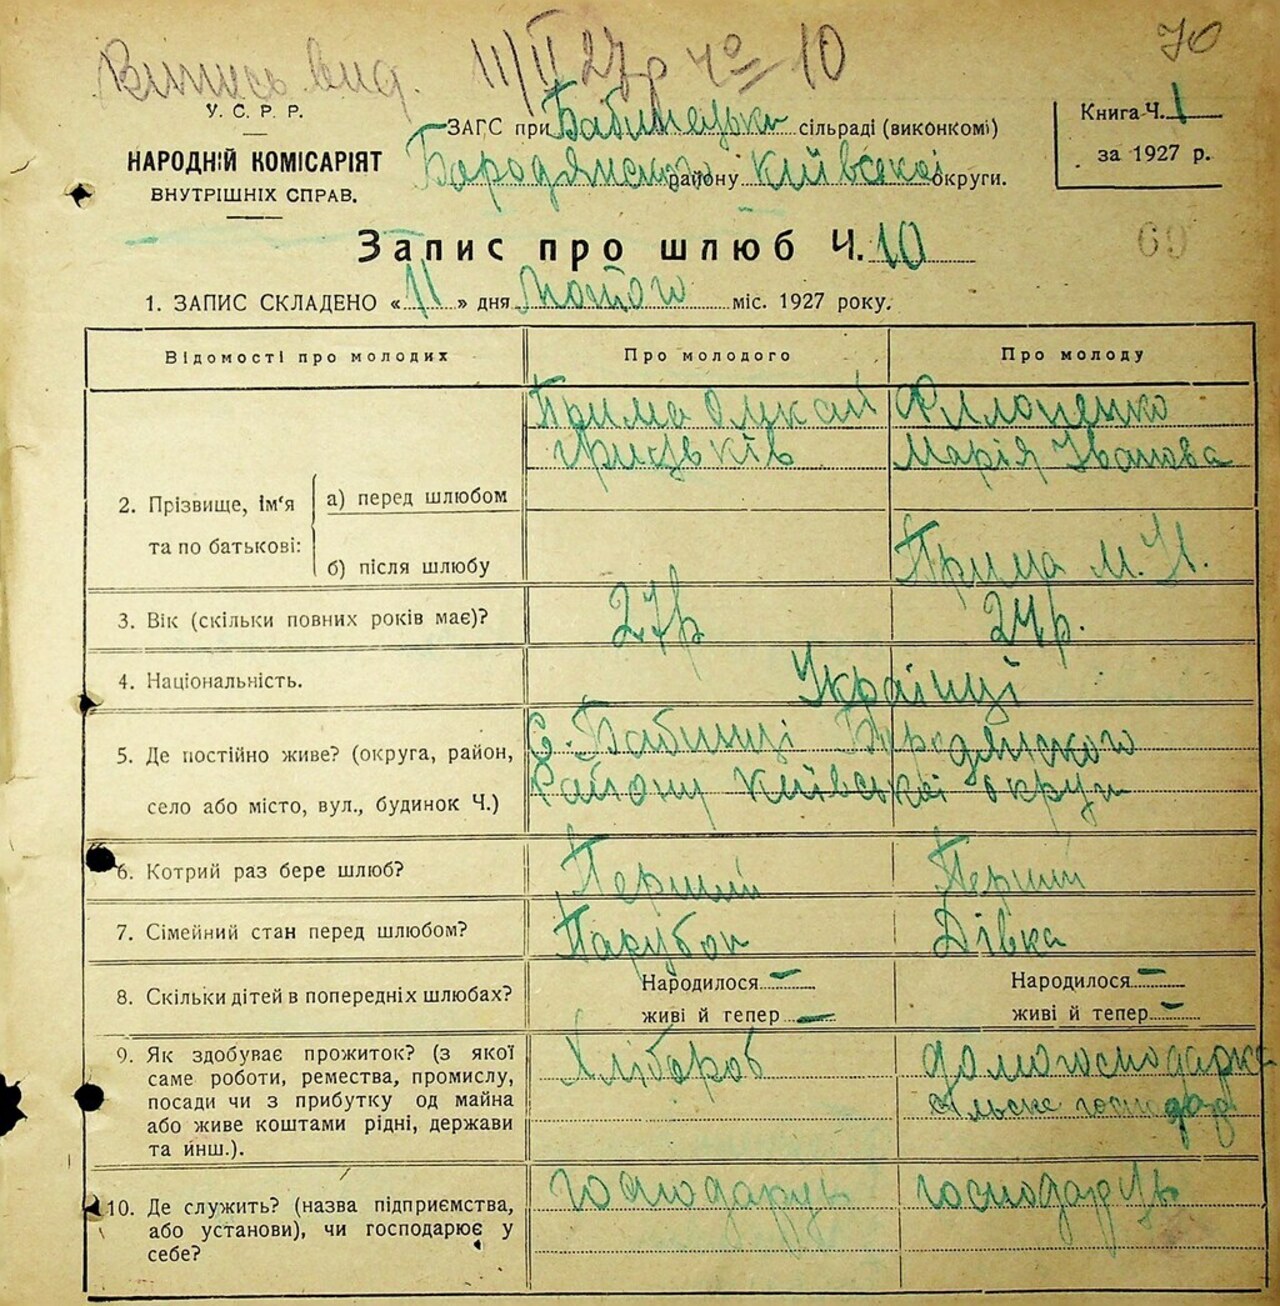 Випись вид. 11/II 27р чо 10
70
У. С. Р. Р.
НАРОДНІЙ КОМІСАРІЯТ
ВНУТРІШНІХ СПРАВ.
ЗАГС при Бабинецькі сільраді (виконкомі)
Бородянского району Київської округи.
Книга Ч. 1
за 1927 р.
Запис про шлюб Ч. 10
69
1. ЗАПИС СКЛАДЕНО «11» дня Лютого міс. 1927 року.
Відомості про молодих
Про молодого
Про молоду
2. Прізвище, ім‘я
та по батькові:
а) перед шлюбом
б) після шлюбу
Прима
Филоненко
Марія Іванова
Прима М. И.
3. Вік (скільки повних років має)?
27р
24р.
4. Національність.
Українці
5. Де постійно живе? (округа, район,
село або місто, вул., будинок Ч.)
С. Бабинці Бородянского
Району Київської округи
6. Котрий раз бере шлюб?
Перший
Перший
7. Сімейний стан перед шлюбом?
Парубок
Дівка
8. Скільки дітей в попередніх шлюбах?
Народилося –
живі й тепер –
Народилося –
живі й тепер –
9. Як здобуває прожиток? (з якої
саме роботи, ремества, промислу,
посади чи з прибутку од майна
або живе коштами рідні, держави
та инш.).
Хлібороб
домогосподарка
сільске господар
10. Де служить? (назва підприємства,
або установи), чи господарює у
себе?
господарує
господарує